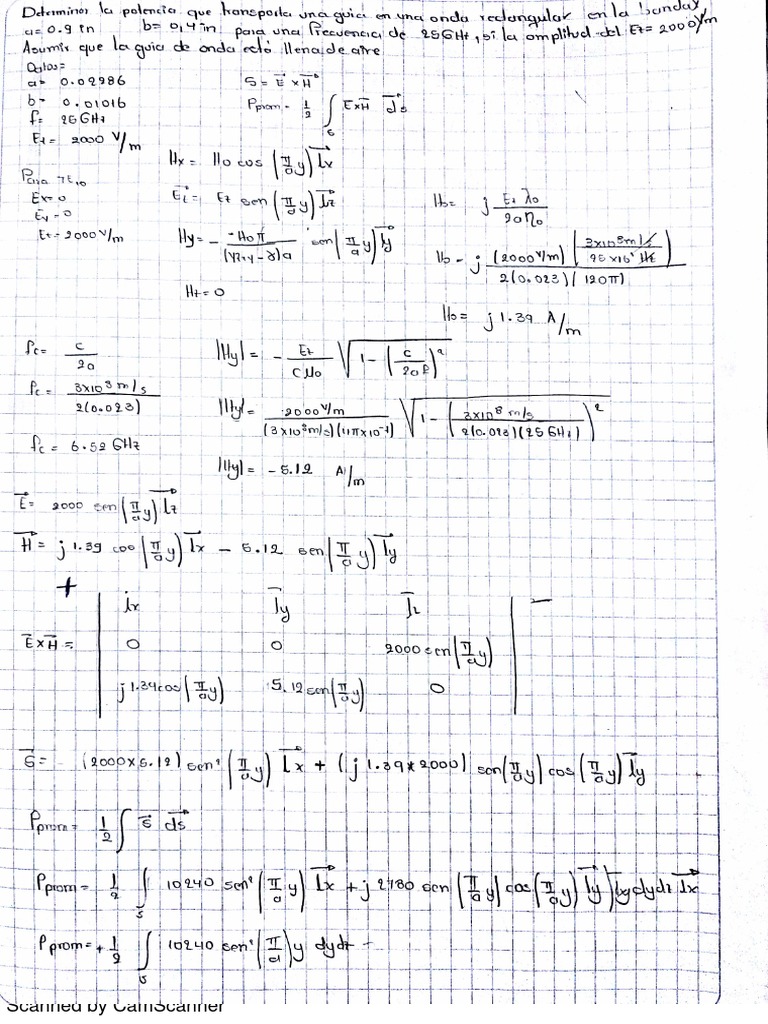 Determinar la potencia que transporta una guia en una onda rectangular en la banda x
a= 0.9 in b= 0,4 in para una frecuencia de 25GHz, si la amplitud del Ez= 2000 V/m
Asumir que la guia de onda está llena de aire
Datos=
a= 0.02286
b= 0.01016
f= 25GHz
Ez= 2000 V/m
S = E x H*
Pprom = 1/2 ∫s ExH ds
Para TE10
Ex=0
Ey=0
Ez=2000 V/m
Hx = Ho cos (π/a y) ix
Ei = Ez sen (π/a y) iz
Hy= - -Hoπ/a sen (π/a y) iy
Hz=0
Ho= j Ez λo / 2aηo
Ho = j (2000 V/m) (3x10^8 m/s / 25x10^9 Hz) / 2(0.023)(120π)
Ho= j 1.39 A/m
fc= c/2a
fc= 3x10^8 m/s / 2(0.023)
fc = 6.52 GHz
|Hy| = - Ez/cμo √(1 - (c/2af)^2)
|Hy|= -2000 V/m / (3x10^8 m/s)(4πx10^-7) √(1 - (3x10^8 m/s / 2(0.023)(25GHz))^2)
|Hy| = -5.12 A/m
E= 2000 sen (π/a y) iz
H = j 1.39 cos (π/a y) ix - 5.12 sen (π/a y) iy
+ ix iy iz -
ExH = 0 0 2000 sen (π/a y)
j 1.39 cos (π/a y) 5.12 sen (π/a y) 0
S= (2000x5.12) sen² (π/a y) ix + (j 1.39*2000) sen (π/a y) cos (π/a y) iy
Pprom= 1/2 ∫ S ds
Pprom= 1/2 ∫s 10240 sen² (π/a y) ix + j 2780 sen (π/a y) cos (π/a y) iy dydz ix
Pprom= + 1/2 ∫s 10240 sen² (π/a) y dydz -
Scanned by CamScanner